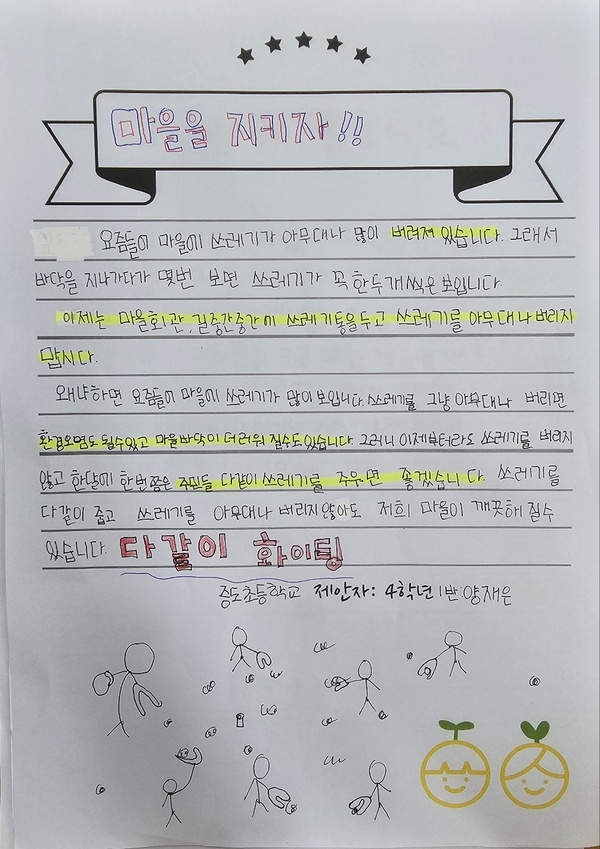 마을을 지키자!!
요즘들어 마을에 쓰레기가 아무대나 많이 버려져 있습니다. 그래서
바닥을 지나가다가 몇번 보면 쓰레기가 꼭 한두개씩은 보입니다.
이제는 마을회관, 길중간중간에 쓰레기통을 두고 쓰레기를 아무대나 버리지
맙시다.
왜냐하면 요즘들어 마을에 쓰레기가 많이 보입니다. 쓰레기를 그냥 아무대나 버리면
환경오염도 될수있고 마을바닥이 더러워 질수도있습니다. 그러니 이제부터라도 쓰레기를 버리지
않고 한달에 한번쯤은 주민들 다같이 쓰레기를 주우면 좋겠습니다. 쓰레기를
다같이 줍고 쓰레기를 아무대나 버리지않아도 저희 마을이 깨끗해 질수
있습니다. 다같이 화이팅
증도초등학교 제안자: 4학년 1반 양재은